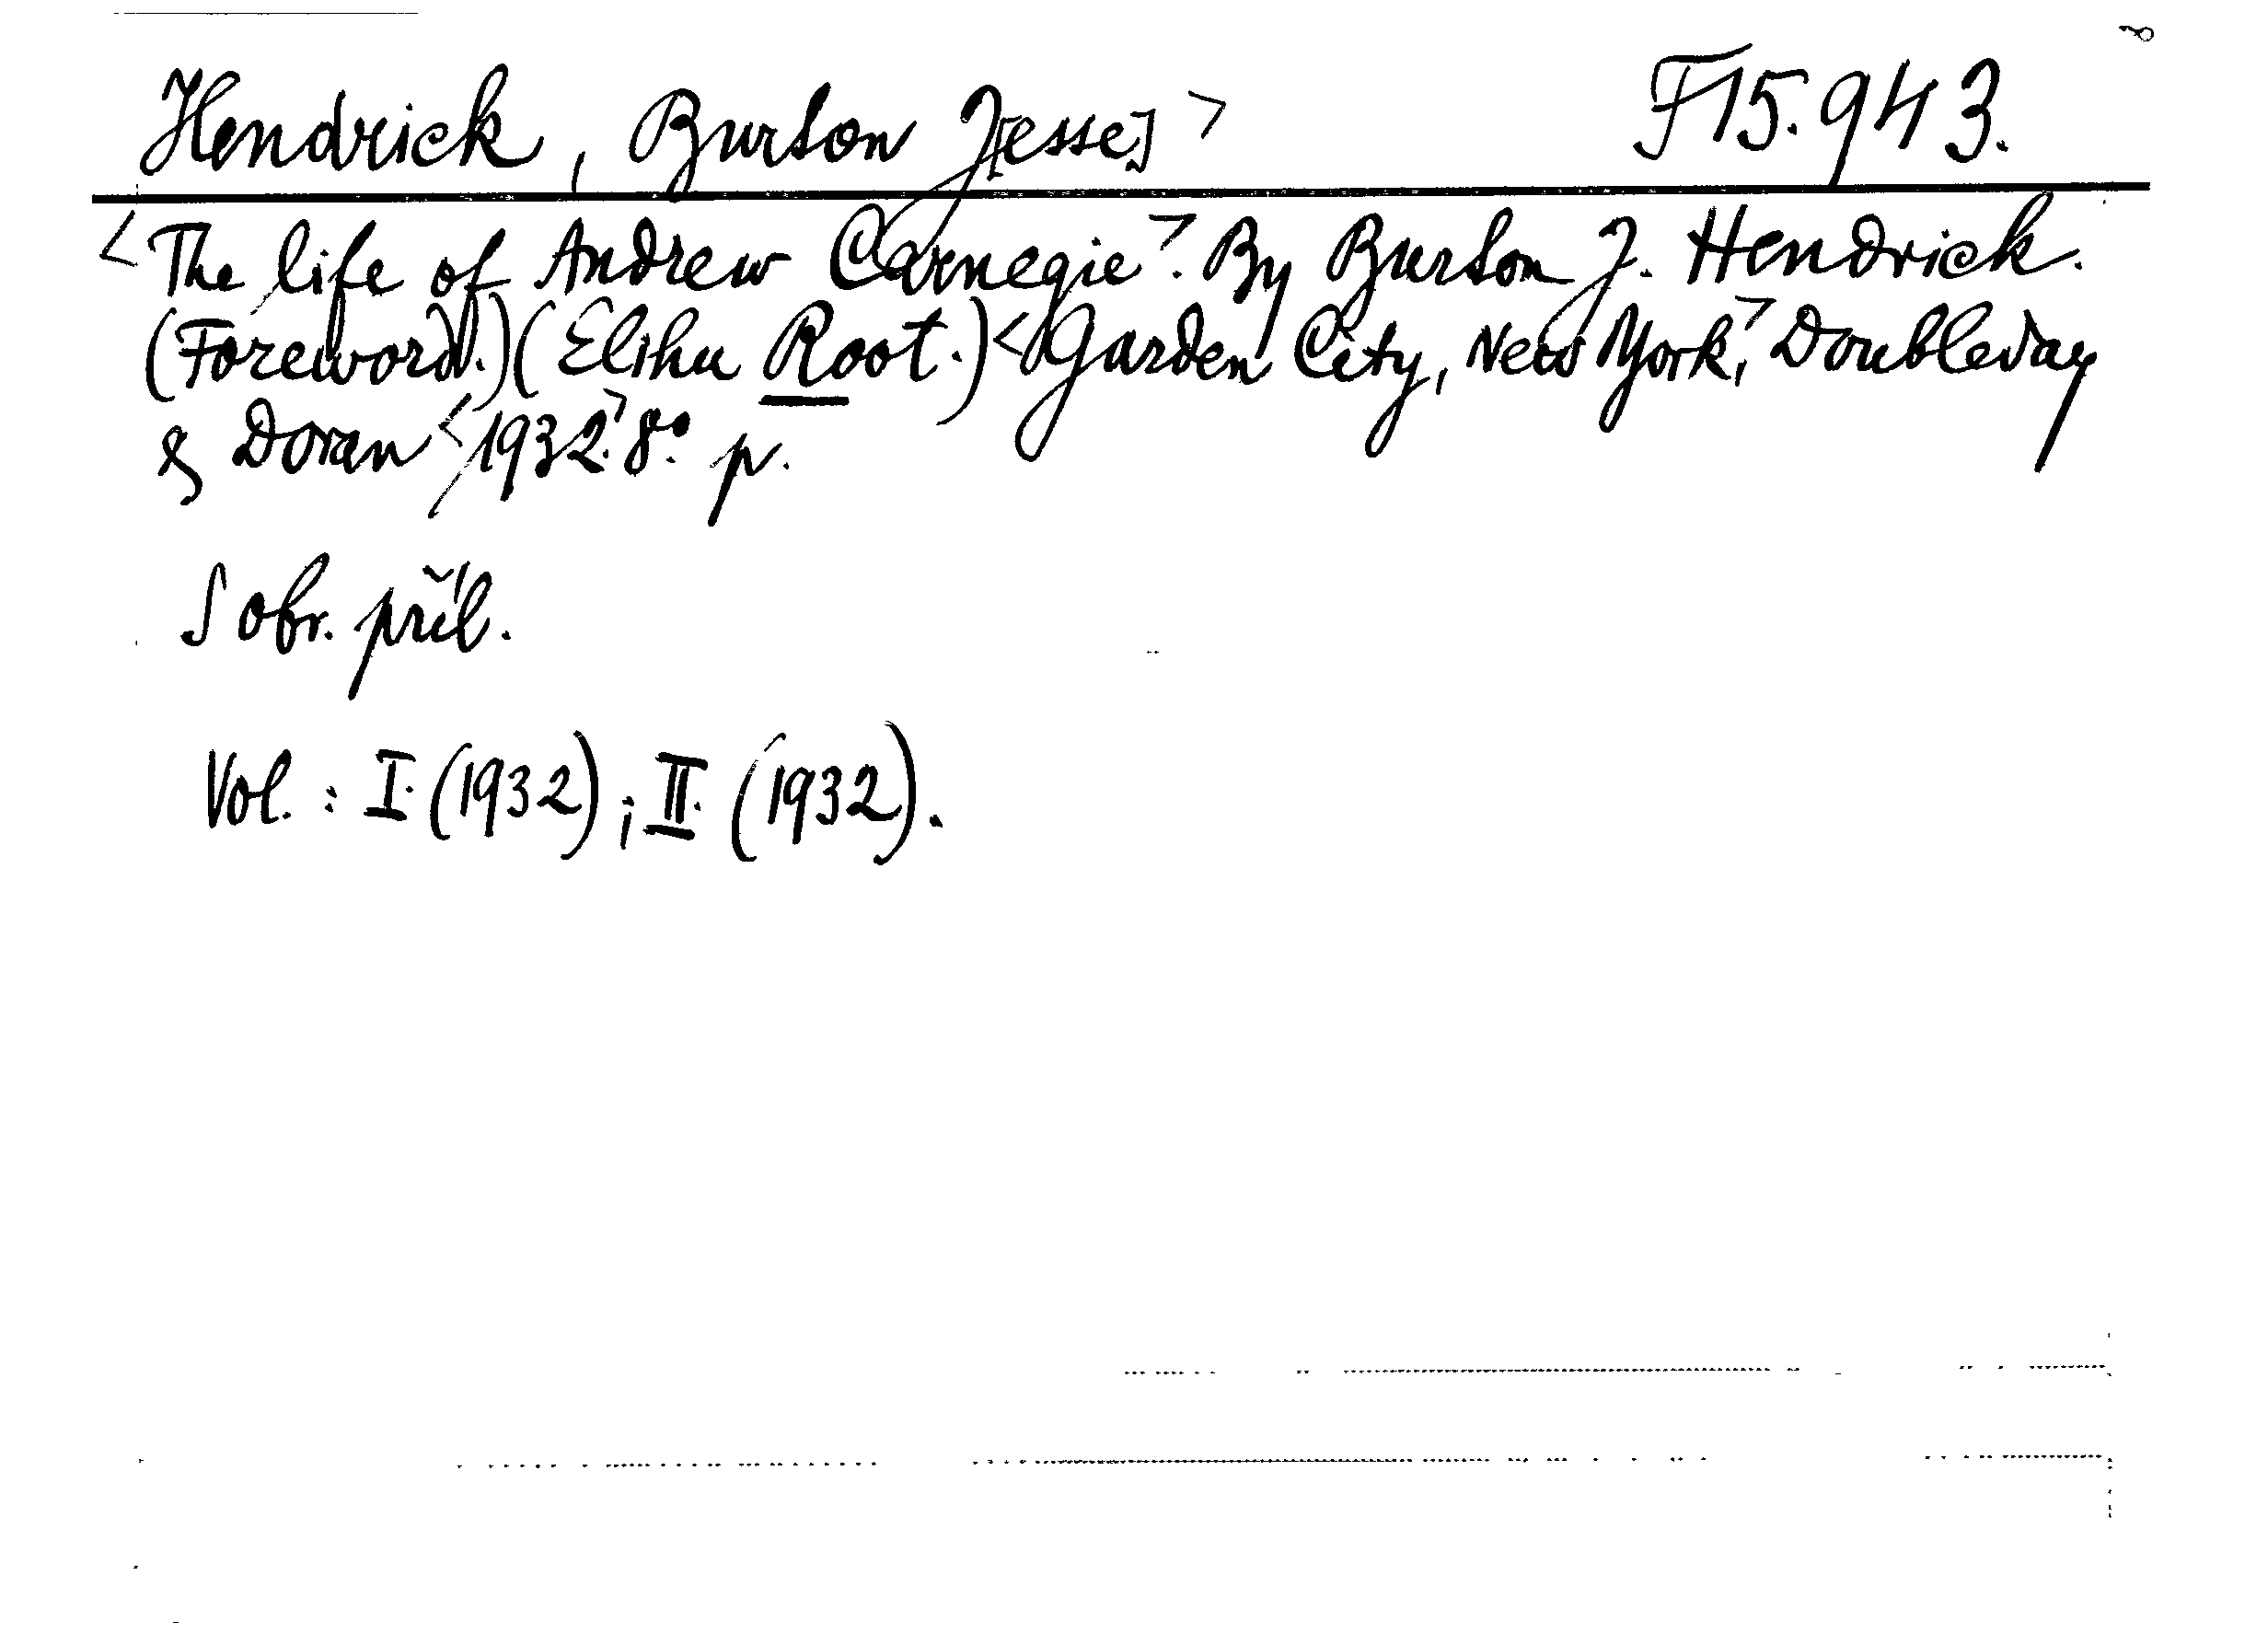 Hendrick, Burton J[esse] > F 15.943.
<The life of Andrew Carnegie>. By Burton J. Hendrick.
(Foreword.) (Elihu Root.) <Garden City, New York,> Doubleday
& Doran <1932.> 8°. p.
S obr. příl.
Vol.: I. (1932); II. (1932).